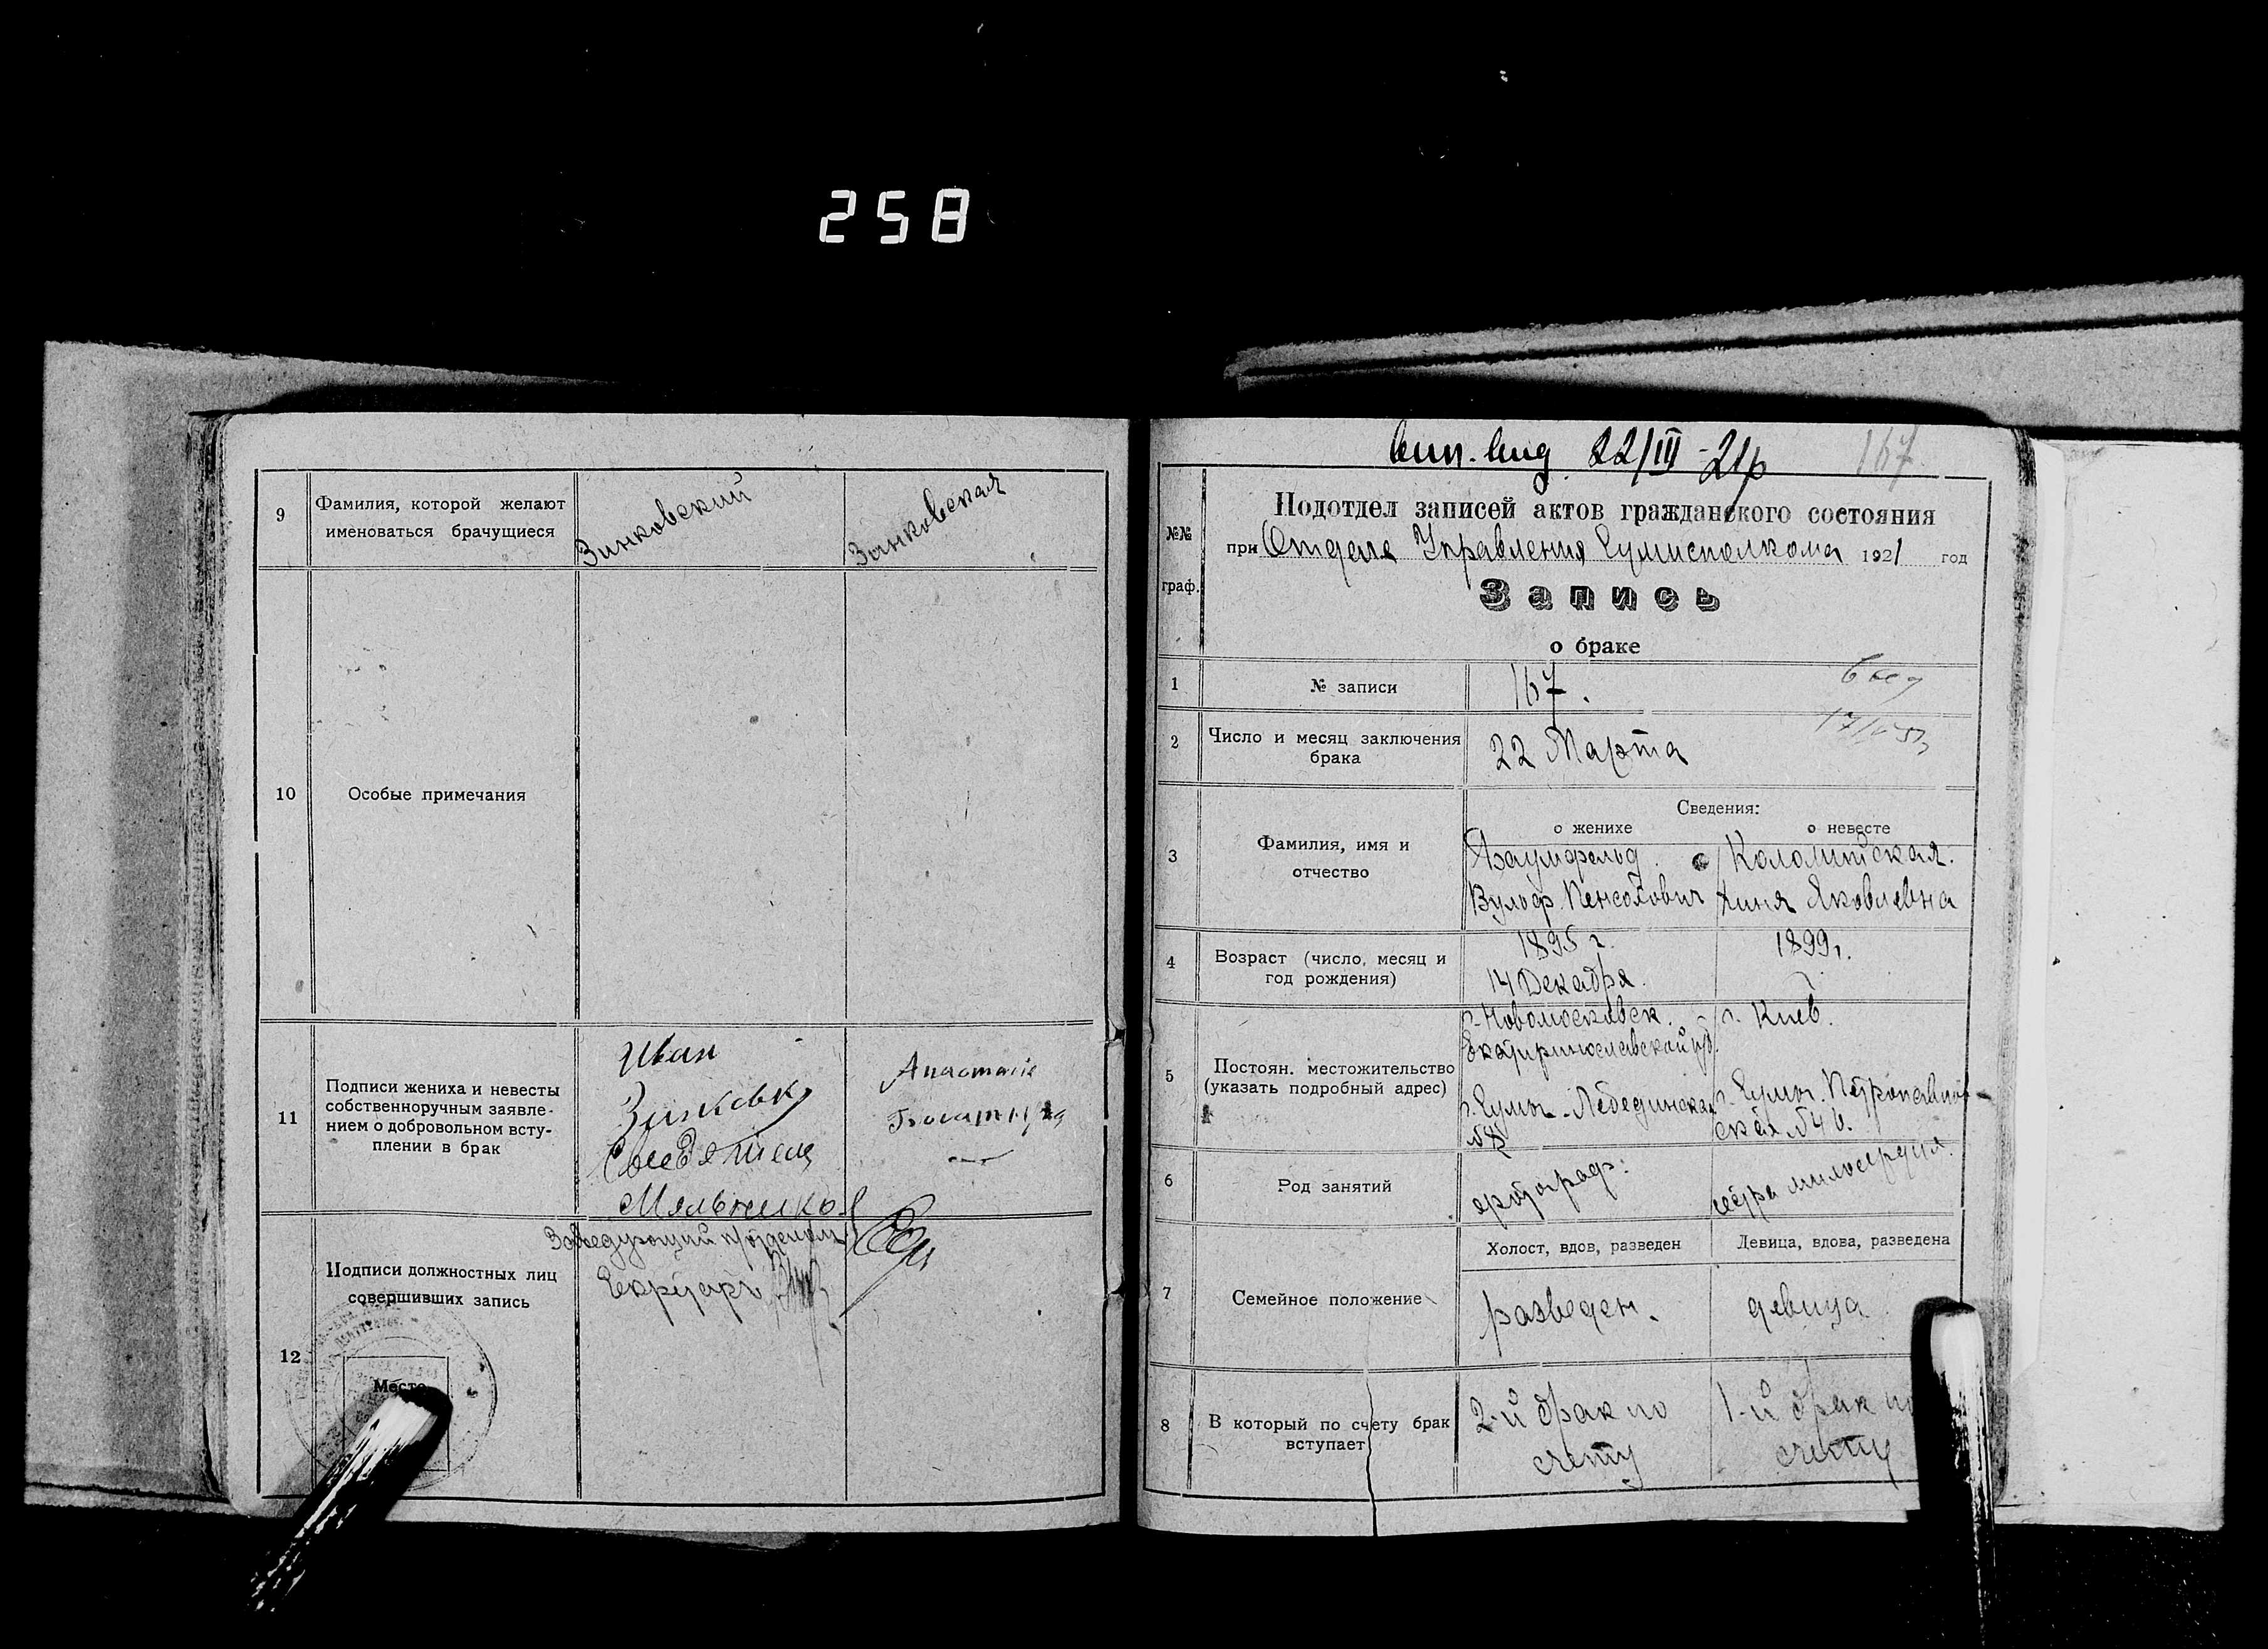 258
9
Фамилия, которой желают
именоваться брачущиеся
Зинковский
Зинковская
10
Особые примечания
11
Подписи жениха и невесты
собственноручным заявле-
нием о добровольном всту-
плении в брак
Иван
Зинковск
Анастасія
12
Подписи должностных лиц
совершивших запись
Заведующий п/отделом
Секретарь
Место
22/III-21р
167
№№
граф.
Подотдел записей актов гражданского состояния
при Отделе Управления Сумисполкома 1921 год
Запись
о браке
1
№ записи
167.
2
Число и месяц заключения
брака
22 Марта
3
Фамилия, имя и
отчество
Сведения:
о женихе
о невесте
Коломитская.
Вульф
Хиня Яковлевна
4
Возраст (число, месяц и
год рождения)
1895 г.
14 Декабря.
1899 г.
5
Постоян. местожительство
(указать подробный адрес)
г. Новомосковск.
Екатеринославской губ.
г. Сумы. Лебединская
№8
г. Киев.
г. Сумы. Петропавлов-
ская №46.
6
Род занятий
фотограф.
сестра милосердия.
7
Семейное положение
Холост, вдов, разведен
Девица, вдова, разведена
разведен.
девица
8
В который по счету брак
вступает
2-й брак по
счету
1-й брак по
счету